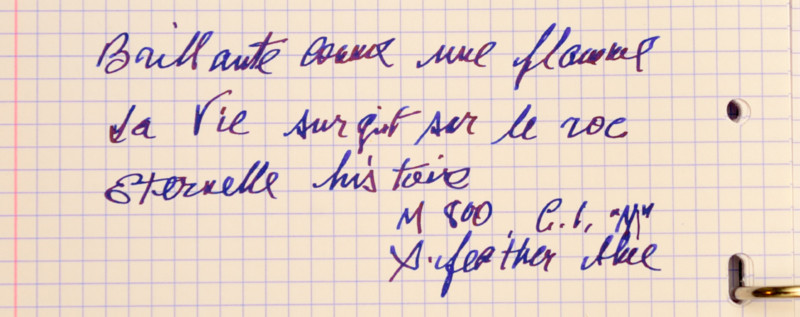 Brillante comme une flamme
La Vie surgit sur le roc
Eternelle histoire
M 800, C.I, "M"
X.feather blue